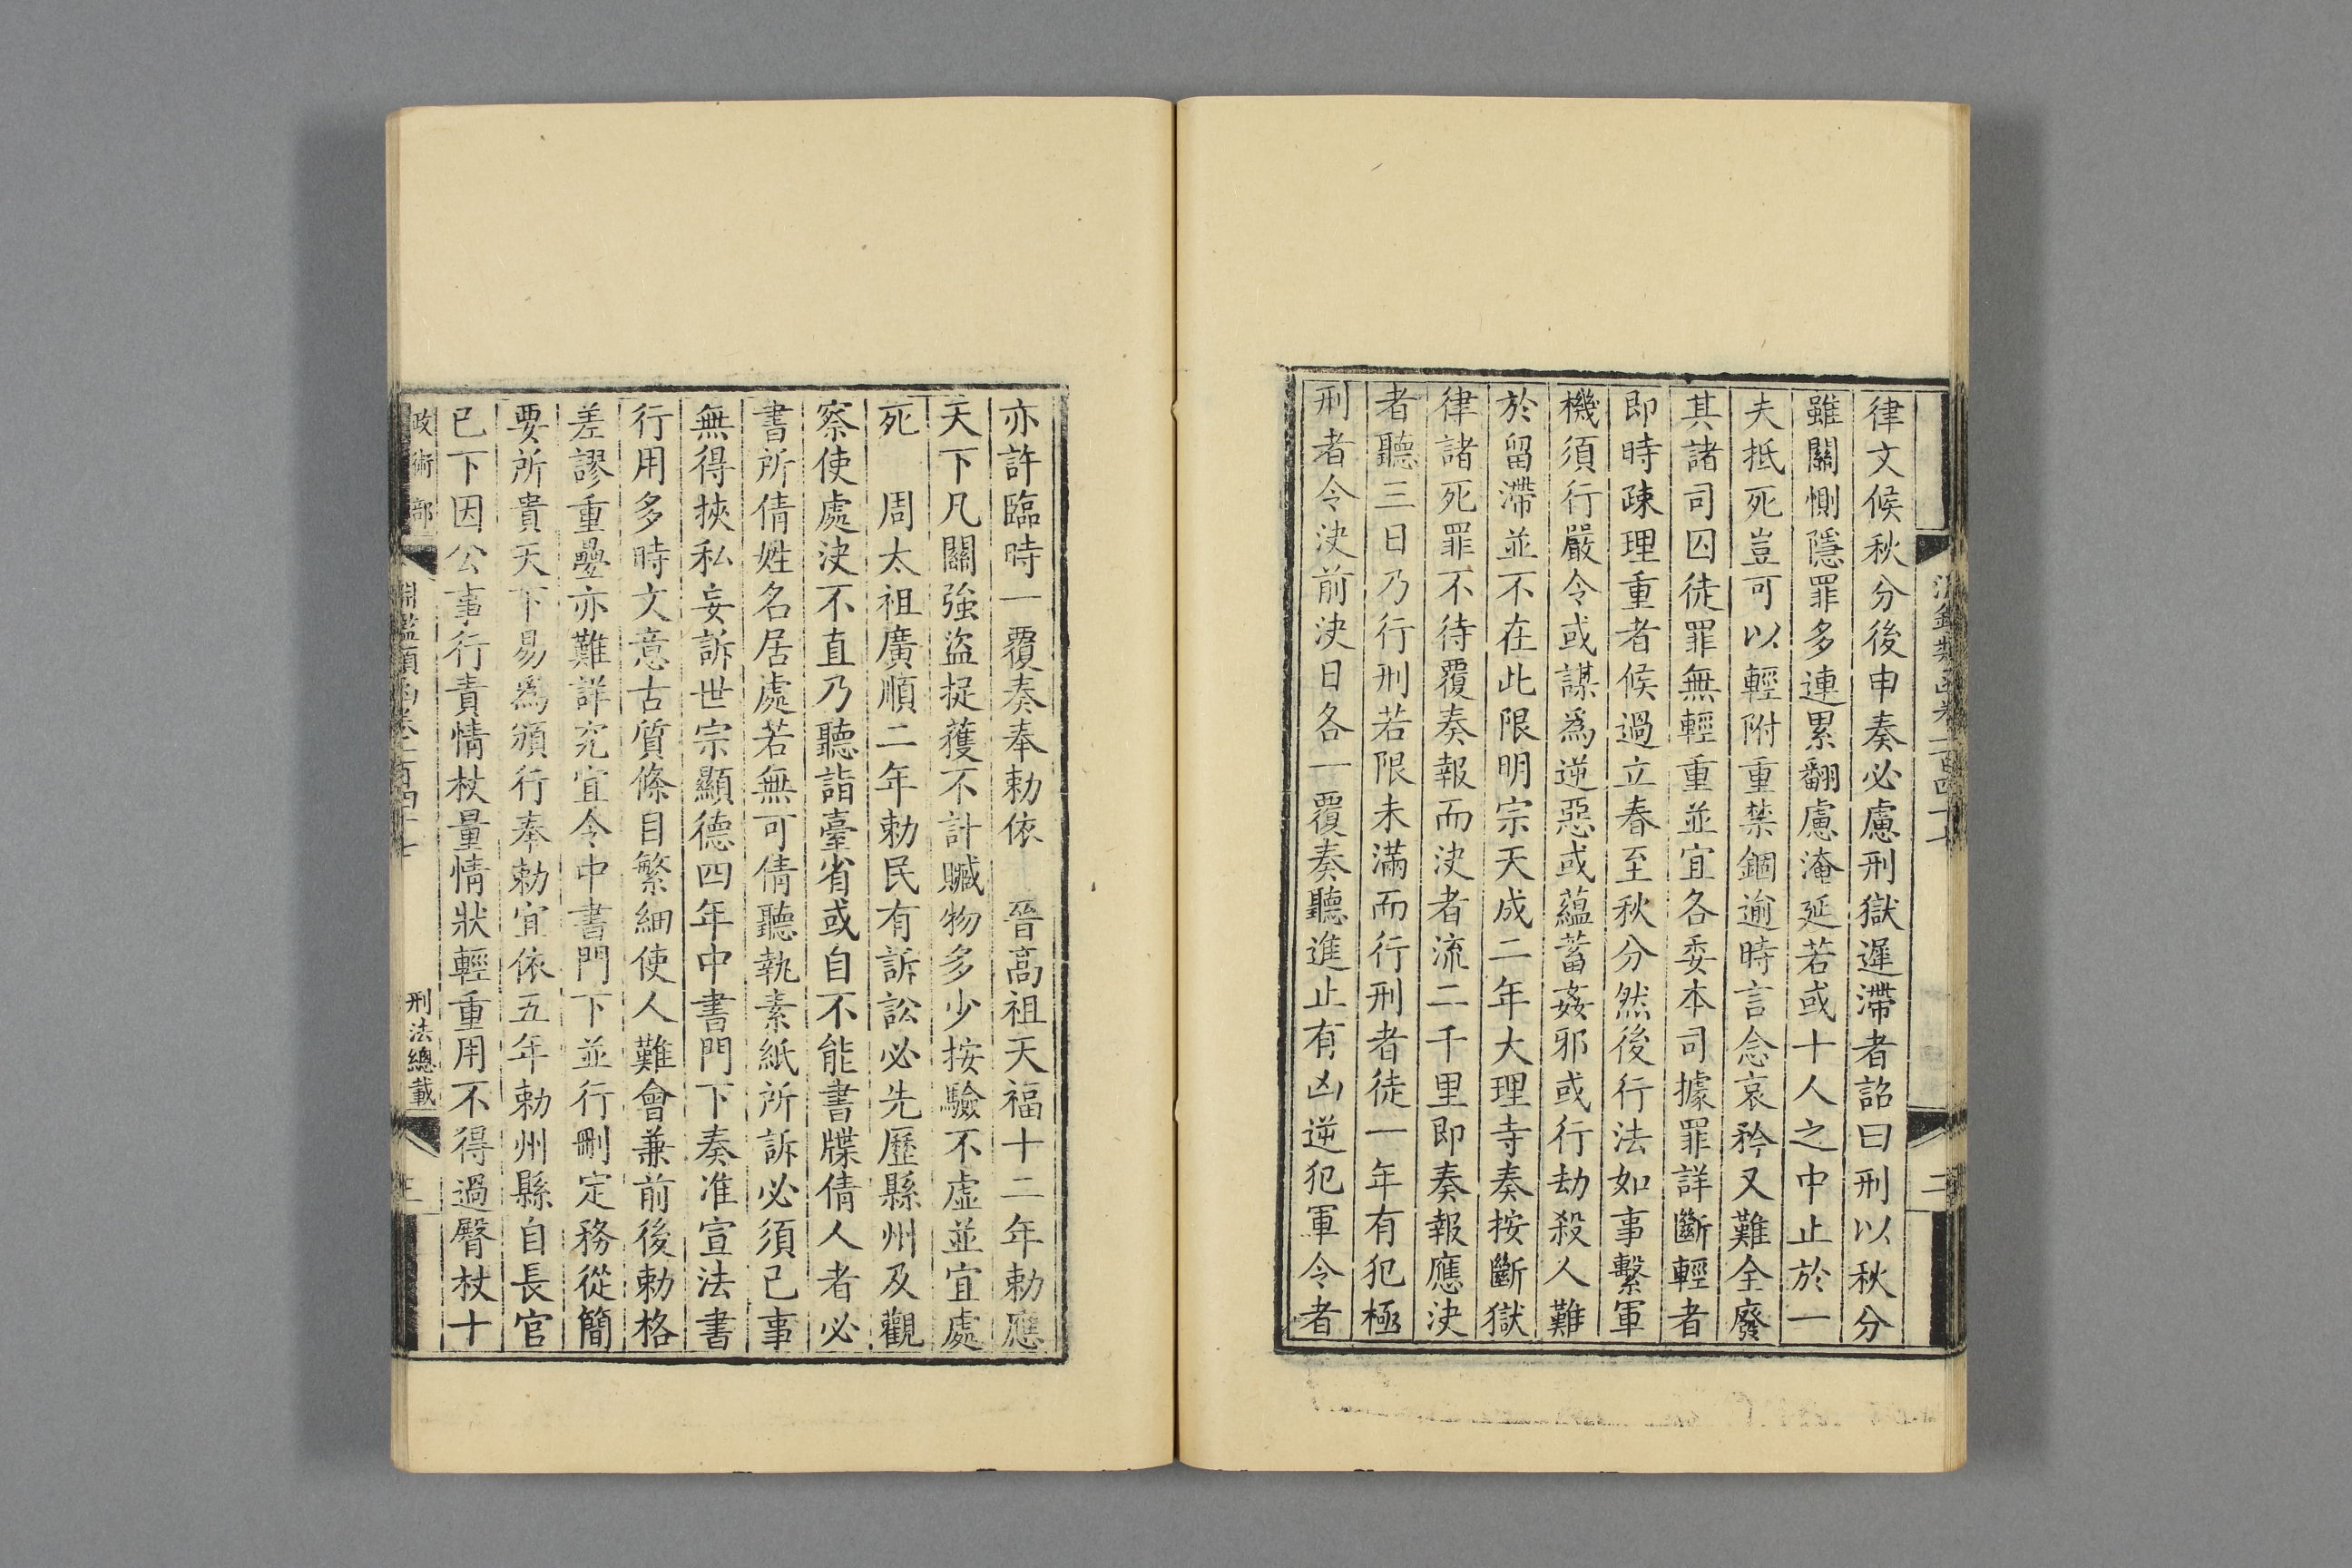 律文候秋分後申奏必慮刑獄遲滯者詔曰刑以秋分
雖關惻隱罪多連累翻慮淹延若或十人之中止於一
夫抵死豈可以輕附重禁錮逾時言念哀矜又難全廢
其諸司囚徒罪無輕重並宜各委本司據罪詳斷輕者
即時疎理重者候過立春至秋分然後行法如事繫軍
機須行嚴令或謀爲逆惡或蘊蓄姦邪或行劫殺人難
於留滯並不在此限明宗天成二年大理寺奏按斷獄
律諸死罪不待覆奏報而決者流二千里即奏報應決
者聽三日乃行刑若限未滿而行刑者徒一年有犯極
刑者令決前決日各一覆奏聽進止有凶逆犯軍令者
亦許臨時一覆奏奉勅依　晉高祖天福十二年勅應
天下凡關強盜捉獲不計贓物多少按驗不虛並宜處
死　周太祖廣順二年勅民有訴訟必先歷縣州及觀
察使處決不直乃聽詣臺省或自不能書牒倩人者必
書所倩姓名居處若無可倩聽執素紙所訴必須己事
無得挾私妄訴世宗顯德四年中書門下奏准宣法書
行用多時文意古質條目繁細使人難會兼前後勅格
差謬重疊亦難詳究宜令中書門下並行刪定務從簡
要所貴天下易爲頒行奉勅宜依五年勅州縣自長官
已下因公事行責情杖量情狀輕重用不得過臀杖十
政術部
淵鑑類函卷一百四十七
刑法總載
三